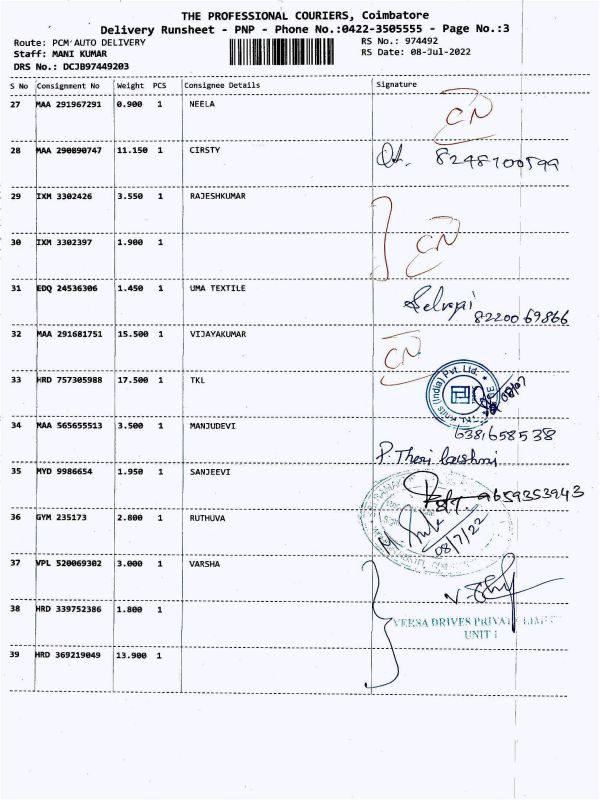 THE PROFESSIONAL COURIERS, Coimbatore
Delivery Runsheet - PNP - Phone No.:0422-3505555 - Page No.:3
Route: PCM AUTO DELIVERY
RS No.: 974492
Staff: MANI KUMAR
RS Date: 08-Jul-2022
DRS No.: DCJB97449203
S No Consignment No Weight PCS Consignee Details Signature
27 MAA 291967291 0.900 1 NEELA
CN
28 MAA 290890747 11.150 1 CIRSTY
8248700599
29 IXM 3302426 3.550 1 RAJESHKUMAR
30 IXM 3302397 1.900 1
CN
31 EDQ 24536306 1.450 1 UMA TEXTILE
8220069866
32 MAA 291681751 15.500 1 VIJAYAKUMAR
CN
33 HRD 757305988 17.500 1 TKL
(India) Pvt. Ltd.
08/07
34 MAA 565655513 3.500 1 MANJUDEVI
6381658538
35 MYD 9986654 1.950 1 SANJEEVI
9659353943
36 GYM 235173 2.800 1 RUTHUVA
08/7/22
37 VPL 520069302 3.000 1 VARSHA
38 HRD 339752386 1.800 1
VEESA DRIVES PRIVATE
UNIT 1
39 HRD 369219049 13.900 1